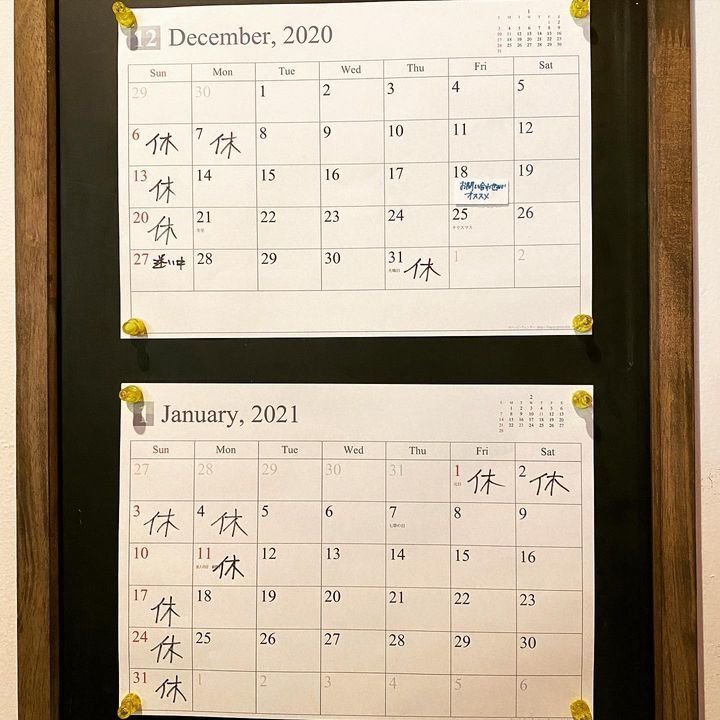 12 December, 2020
Sun Mon Tue Wed Thu Fri Sat
29 30 1 2 3 4 5
6 休 7 休 8 9 10 11 12
13 休 14 15 16 17 18 19
お問い合わせ
オススメ
20 休 21 22 23 24 25 26
冬至 クリスマス
27 迷い中 28 29 30 31 休 1 2
大晦日
1 January, 2021
Sun Mon Tue Wed Thu Fri Sat
27 28 29 30 31 1 休 2 休
元日
3 休 4 休 5 6 7 8 9
七草の日
10 11 休 12 13 14 15 16
成人の日
17 休 18 19 20 21 22 23
24 休 25 26 27 28 29 30
31 休 1 2 3 4 5 6